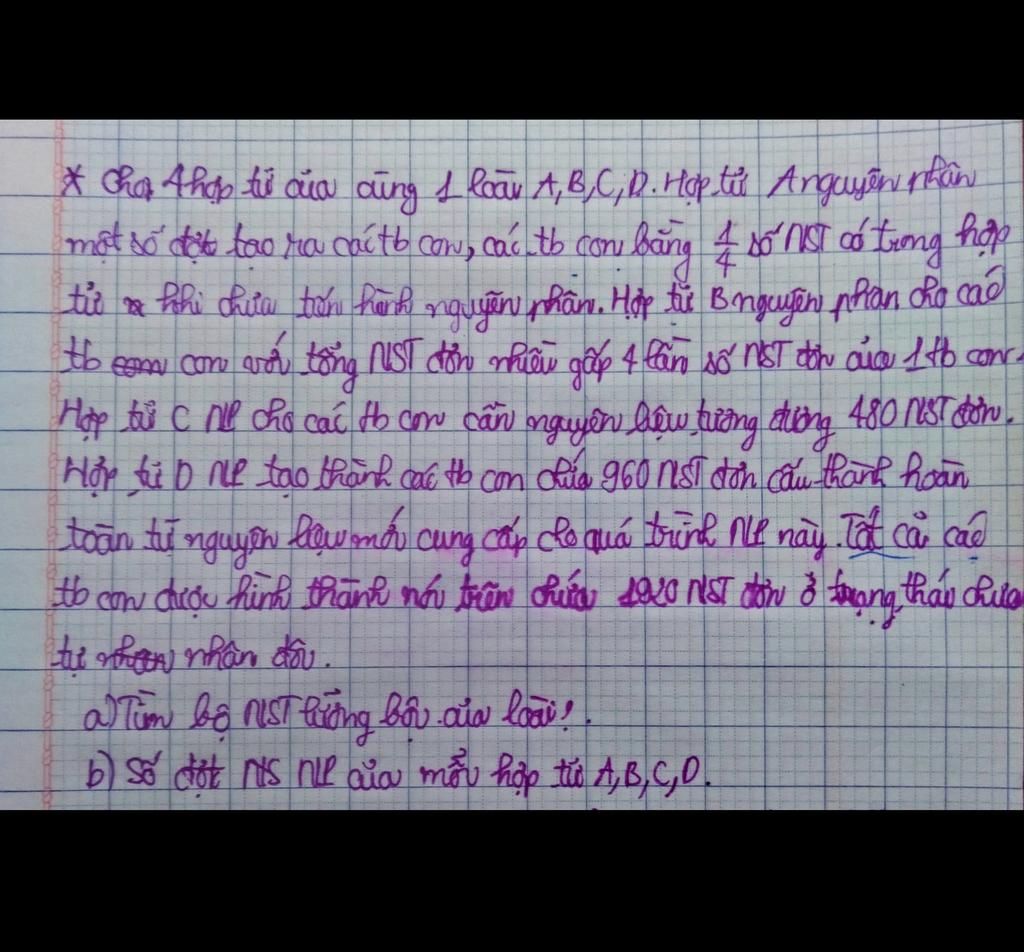 * Cho 4 hợp tử của cùng 1 loài A, B, C, D. Hợp tử A nguyên phân
một số đợt tạo ra các tb con, các tb con bằng 1/4 số NST có trong hợp
tử khi chưa tiến hành nguyên phân. Hợp tử B nguyên phân cho các
tb con với tổng NST đơn nhiều gấp 4 lần số NST đơn của 1 tb con.
Hợp tử C NP cho các tb con cần nguyên liệu tương đương 480 NST đơn.
Hợp tử D NP tạo thành các tb con chứa 960 NST đơn cấu thành hoàn
toàn từ nguyên liệu mới cung cấp cho quá trình NP này. Tất cả các
tb con được hình thành nói trên chứa 1920 NST đơn ở trạng thái chưa
tự nhân đôi.
a) Tìm bộ NST lưỡng bội của loài!
b) Số đợt NS NP của mỗi hợp tử A, B, C, D.